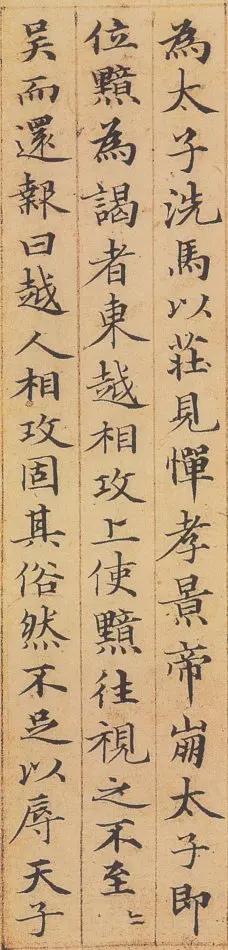 為太子洗馬以莊見憚孝景帝崩太子即
位黯為謁者東越相攻上使黯往視之不至〻
吳而還報曰越人相攻固其俗然不足以辱天子